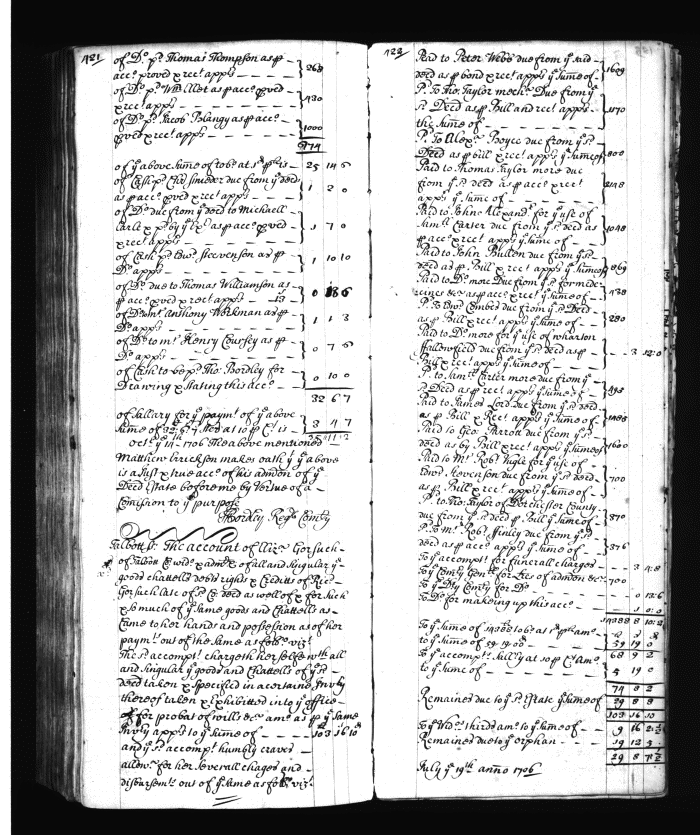 421
of Do p Thomas Thompson as p
acco proved & rect apps 268
of Do p Willet as p acco pved
& rect apps 430
of Do p Jacob Blangy as p acco
pved & rect apps 1000
9174
of ye above Sume of tobo at p is 25 14 6
of Cash p due from ye decd
as p acco pved & rect apps 1 2 0
of Do due from ye decd to Michaell
Earle p by ye as p acco pved
& rect apps 1 7 0
of Cash p Edwd Steevenson as p
Do apps 1 10 10
of Do due to Thomas Williamson as
p acco pved & rect apps 0 18 6
of Do to mr Anthony Workman as p
Do apps 1 1 3
of Do to mr Henry Coursey as p
Do apps 0 7 6
of Cash to be p Tho: Bordley for
Drawing & Stating this acco 0 10 0
32 6 7
of Sallary for ye paymt of ye above
Sume of 32: 6: 7 at 10 p Ct is 3 4 7
35 11 2
octr ye 14th 1706 The above mentioned
Matthew Erickson makes oath yt ye above
is a Just & true acco of his admon of ye
Decd Estate before me by Vertue of a
Comission to ye purpose
TBordley Regr Comry
Talbott ss. The account of Eliza Gorsuch
of Talbott Co wid & admx of all and Singular ye
goods chattells debts rights & Creditts of Ric
Gorsuch late of sd Co decd as well of & for Such
& so much of ye Same goods and Chattells as
Came to her hands and possesion as of her
paymts out of the Same as follo vizt
The sd accomptt chargeth her selfe wth all
and Singular ye goods and Chattells of ye sd
decd taken & Specified in a certaine Invry
thereof taken & Exhibitted into ye office
for probat of wills &c amo as p ye Same
Invry apps to ye Sume of 103 16 10
and ye sd accomptt humbly craves
allowe for her Severall chages and
disbursemts out of ye Same as follo vizt
422
Paid to Peter Webb due from ye said
decd as p bond & rect apps ye Sume of 1609
P. to Tho: Taylor mercht Due from ye
sd Decd as p Bill and rect apps
the Sume of 170
P. To Alexr Boyce due from ye sd
Decd as p Bill & rect apps ye Sume of 800
Paid to Thomas Taylor more due
from ye sd decd as p acco & rect
apps ye Sume of 2148
Paid to John Alexandr for ye use of
Samll Carter due from ye sd decd as
p acco & rect apps ye Sume of 1048
Paid to John Bullen due from ye sd
decd as p Bill & rect apps ye Sume of 869
Paid to Do more Due from ye sd for medi
cines &c as p acco & rect ye Sume of 438
P. to Edwd Combes due from ye sd Decd
as p Bill & rect apps ye Sume of 280
Paid to Do more for ye use of wharton
ffallowfield due from ye sd decd as p
Bill & rect apps ye Sume of 3 12: 0
P. to Samll Carter more due from ye
sd Decd as p rect apps ye Sume of 495
Paid to James Lord due from ye sd decd
as p Bill & Rect apps ye Sume of 1485
Paid to Geo: Parrott due from ye sd
decd as by Bill & rect apps ye Sume of 1600
Paid to Mr Robt for ye use of
Edwd Stevenson due from ye sd decd
as p Bill & rect apps ye Sume of 700
P. to Tho: Taylor of Dorchester County
due from ye sd decd p Bill ye Sume of 870
P. To Mr Robt ffinley due from ye sd
decd as p acco apps ye Sume of 376
To ye accomptt for funerall charges 3 4: 8
To ye Comry Genll for fees of admon &c 700
To ye Dty Comry for Do 0 13: 6
To Do for making up this acco 1 0: 0
14388 8 10: 2
To ye Sume of 14388 tobo at p amo
to ye Sume of 59 19 00 59 19 0
68 9 2
To ye accomptt Sallry at 10 p Ct Amo
to ye Sume of 5 19 0
74 8 2
Remaines due to ye sd Estate ye Sume of 29 8 8
103 16 10
To ye Wds thirds amo to ye Sume of 9 16 2
Remaines due to ye orphan 19 12 5
29 8 7
July ye 19th anno 1706